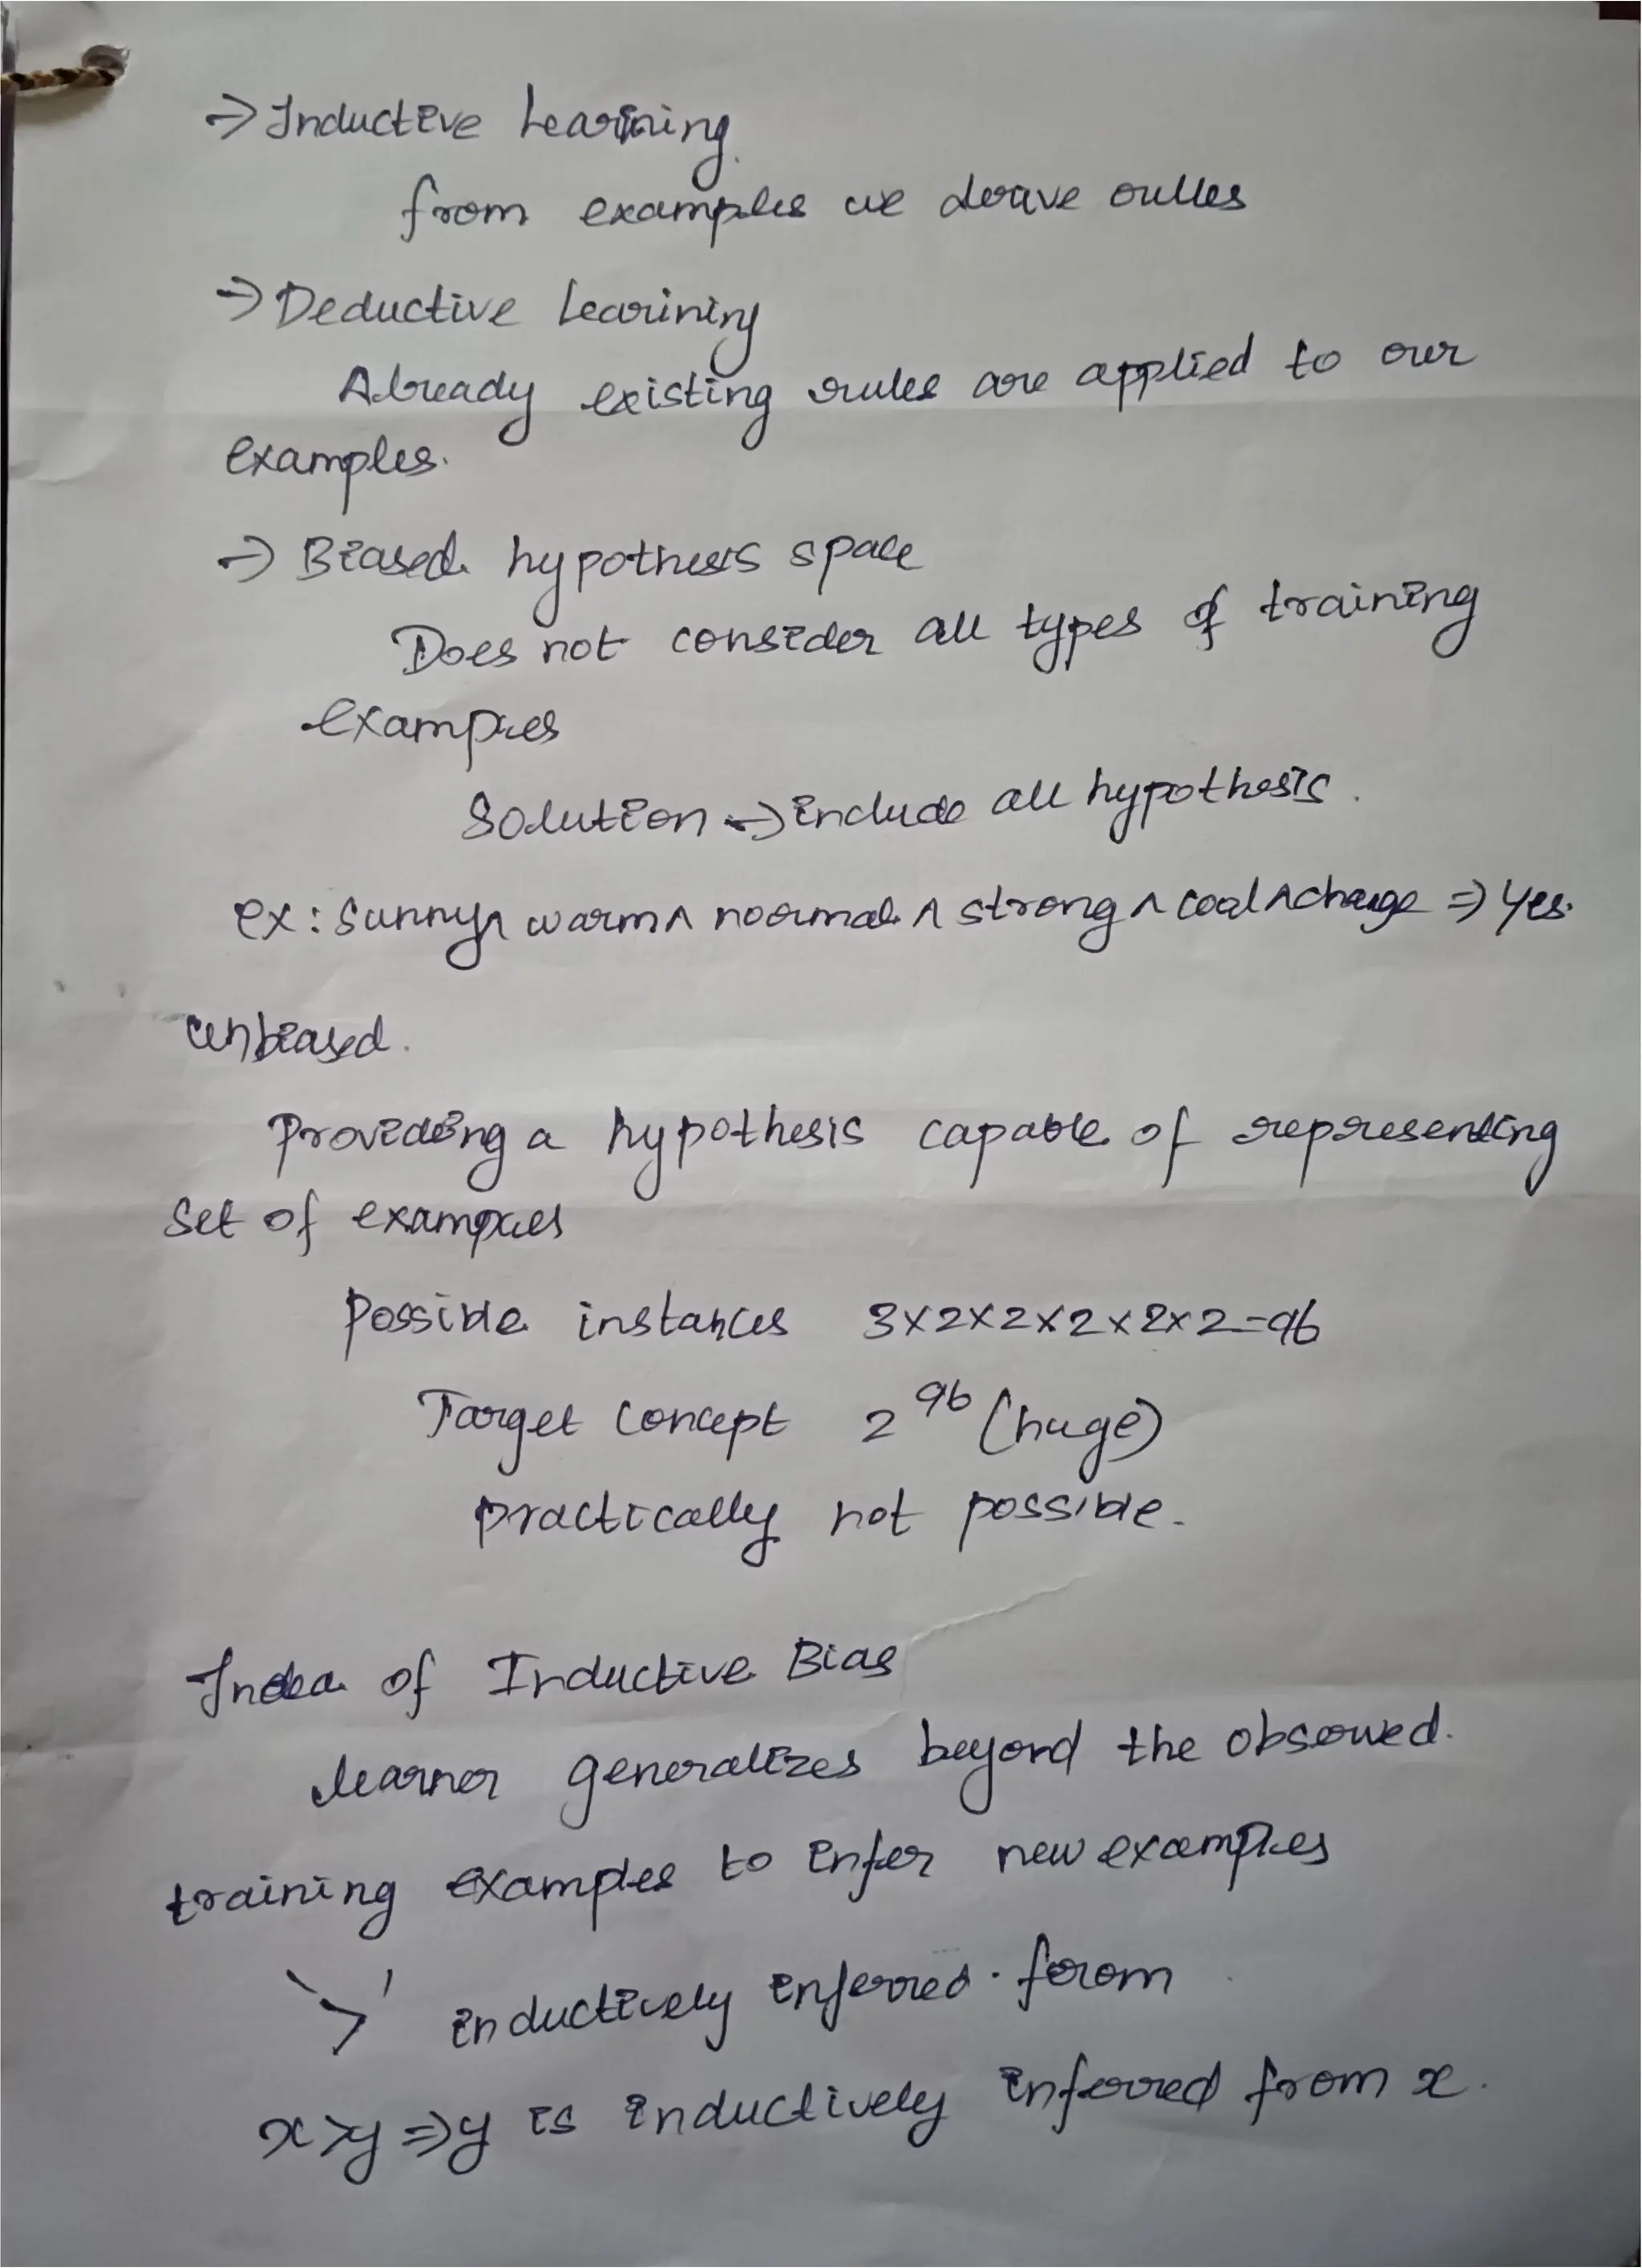 → Inductive Learning
from examples we derive rulles
→ Deductive Learining
Already existing rules are applied to our
examples.
→ Biased hypothesis space
Does not consider all types of training
examples
Solution → include all hypothesis.
ex: Sunny ∧ warm ∧ normal ∧ strong ∧ cool ∧ change ⇒ Yes.
unbiased.
Providing a hypothesis capable of representing
set of examples
Possible instances 3×2×2×2×2×2=96
Target Concept 2^96 (huge)
practically not possible.
Indea of Inductive Bias
learner generalizes beyond the observed.
training examples to infer new examples
'>' inductively inferred. from
x>y ⇒ y is inductively inferred from x.